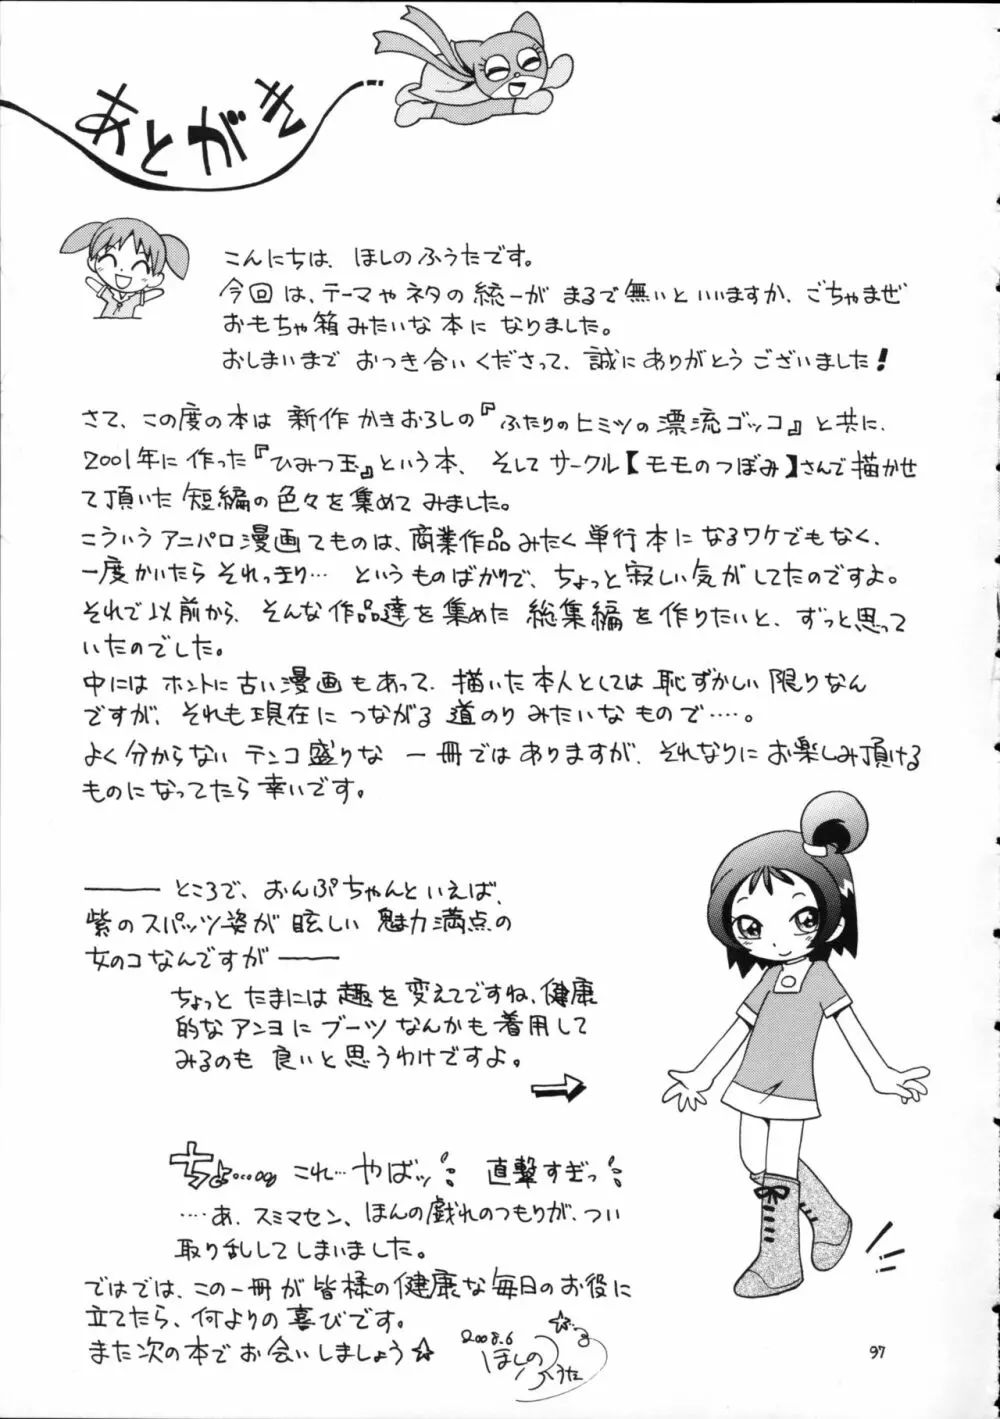 あとがき
こんにちは、ほしのふうたです。
今回は、テーマやネタの統一がまるで無いといいますか、ごちゃまぜ
おもちゃ箱みたいな本になりました。
おしまいまでおつき合いくださって、誠にありがとうございました!
さて、この度の本は新作かきおろしの『ふたりのヒミツの漂流ゴッコ』と共に、
2001年に作った『ひみつ玉』という本、そしてサークル【モモのつぼみ】さんで描かせ
て頂いた短編の色々を集めてみました。
こういうアニパロ漫画てものは、商業作品みたく単行本になるワケでもなく、
一度かいたらそれっきり…というものばかりで、ちょっと寂しい気がしてたのですよ。
それで以前から、そんな作品達を集めた総集編を作りたいと、ずっと思って
いたのでした。
中にはホントに古い漫画もあって、描いた本人としては恥ずかしい限りなん
ですが、それも現在につながる道のりみたいなもので……。
よく分からないテンコ盛りな一冊ではありますが、それなりにお楽しみ頂ける
ものになってたら幸いです。
――ところで、おんぷちゃんといえば、
紫のスパッツ姿が眩しい魅力満点の
女のコなんですが――
ちょっとたまには趣を変えてですね、健康
的なアンヨにブーツなんかも着用して
みるのも良いと思うわけですよ。
ちょ……これ…やばッ!! 直撃すぎっ!!
……あ、スミマセン、ほんの戯れのつもりが、つい
取り乱してしまいました。
ではでは、この一冊が皆様の健康な毎日のお役に
立てたら、何よりの喜びです。
また次の本でお会いしましょう☆
2008.6
ほしの
ふうた
97